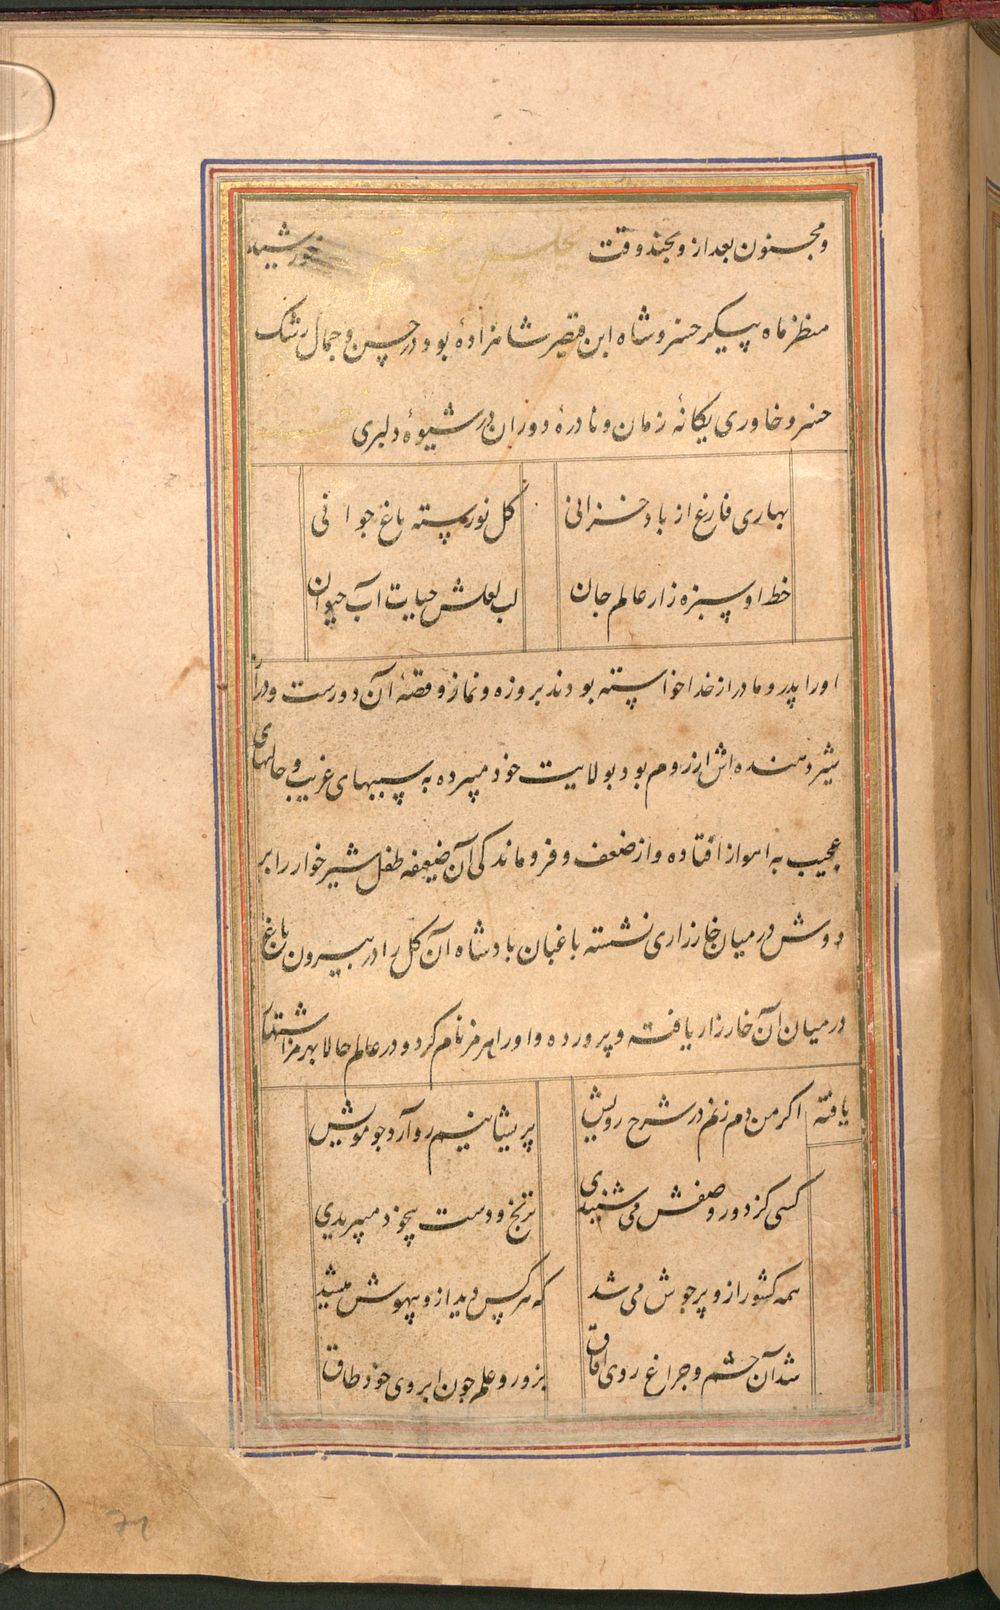 و مجنون بعد از و بچند وقت مجلس خورشید
منظر ماه پیکر خسرو شاه ابن قیصر شاهزادهٔ بود در حسن و جمال رشک
خسرو خاوری یکانهٔ زمان و نادرهٔ دوران در شیوهٔ دلبری
بهاری فارغ از باد خزانی کل نورسته باغ جوانی
خط او سبزه زار عالم جان لب لعلش حیات آب حیوان
او را پدر و مادر از خدا خواسته بودند بروزه و نماز و قصهٔ آن دورست و دراز
شیر دهنده اش از روم بود بولایت خود میبرده به سببهای غریب و حالهای
عجیب به اهواز افتاده و از ضعف و فروماندکی آن ضعیفه طفل شیرخوار را بر
دوش در میان خارزاری نشسته باغبان پادشاه آن کل را در بیرون باغ
در میان آن خارزار یافته و پرورده و او را هرمز نام کرد و در عالم حالا بهرمز اشتهار
یافته اکر من دم زنم در شرح رویش پریشانیم رو آرد جو مویش
کسی کز دور وصفش می شنیدی ترنج و دست بیخود میبریدی
همه کشور ازو پر جوش می شد که هر کس دید ازو بیهوش میشد
شد آن چشم و جراغ روی آفاق بزور و علم جون ابروی خود طاق
71